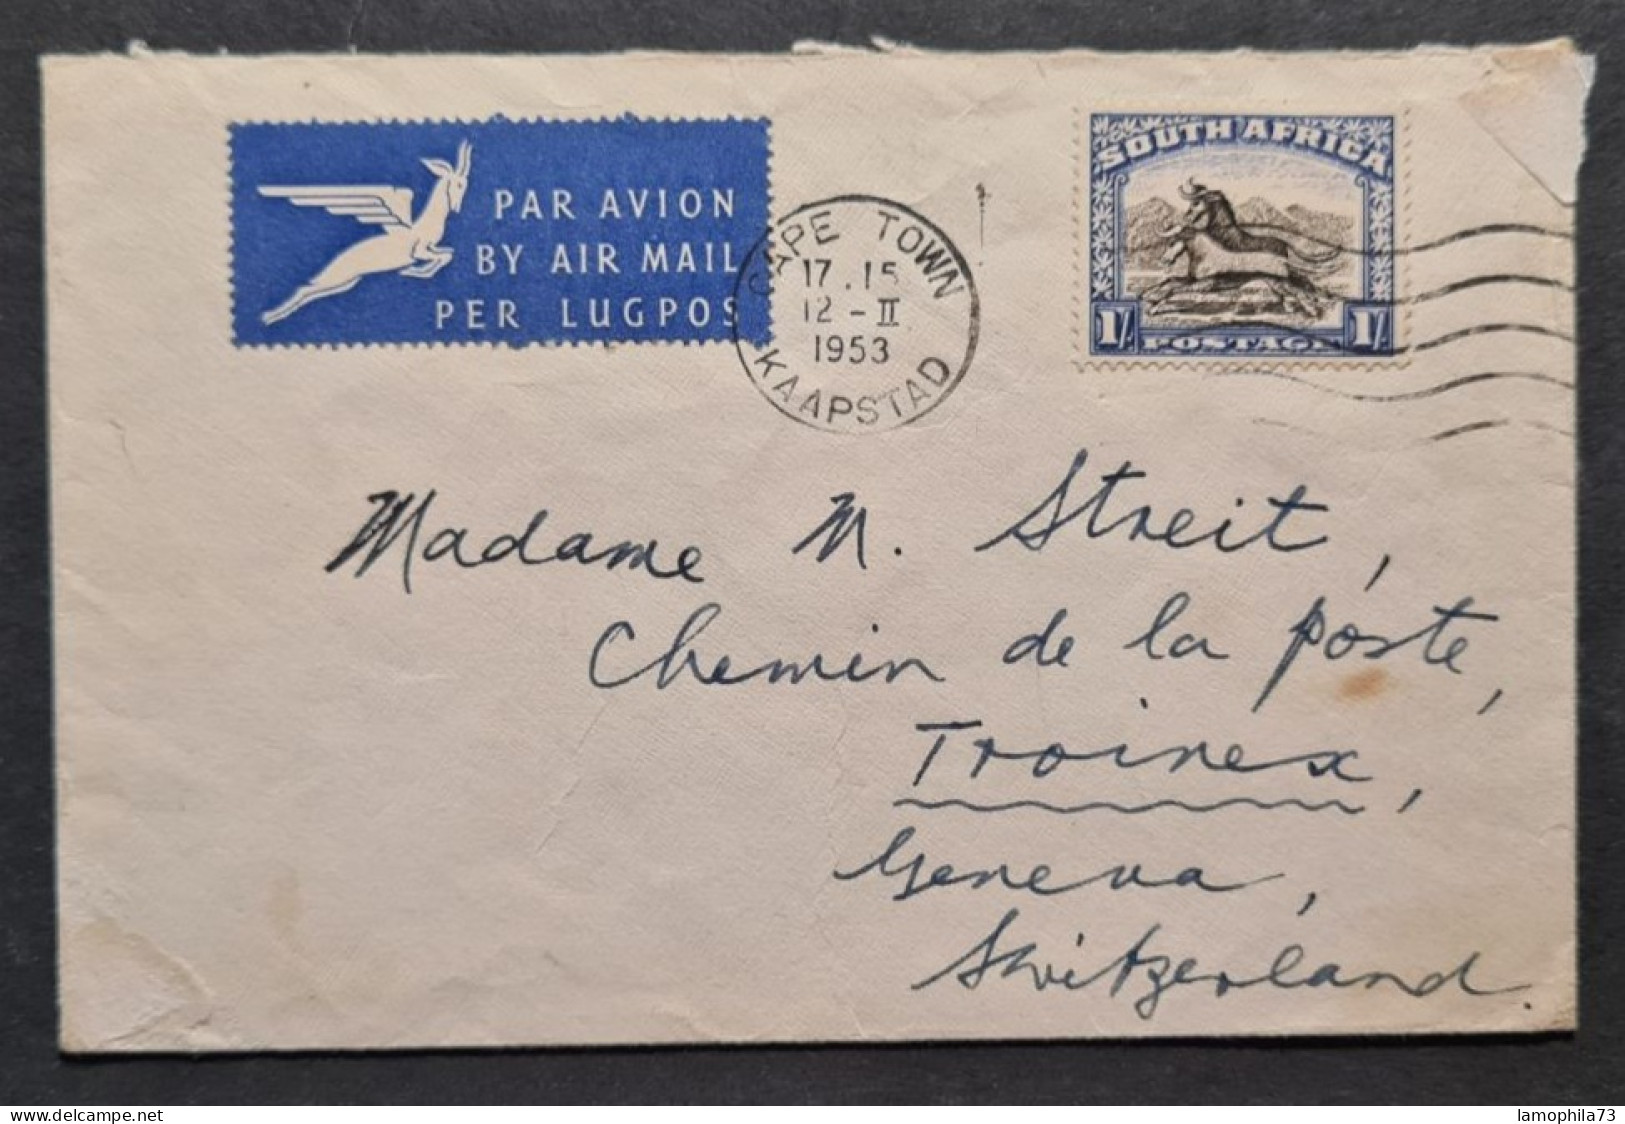 PAR AVION
BY AIR MAIL
PER LUGPOS
CAPE TOWN
17.15
12-II
1953
KAAPSTAD
SOUTH AFRICA
1/- POSTAGE 1/-
Madame M. Streit,
Chemin de la poste,
Troinex,
Geneva,
Switzerland.
www.delcampe.net
lamophila73